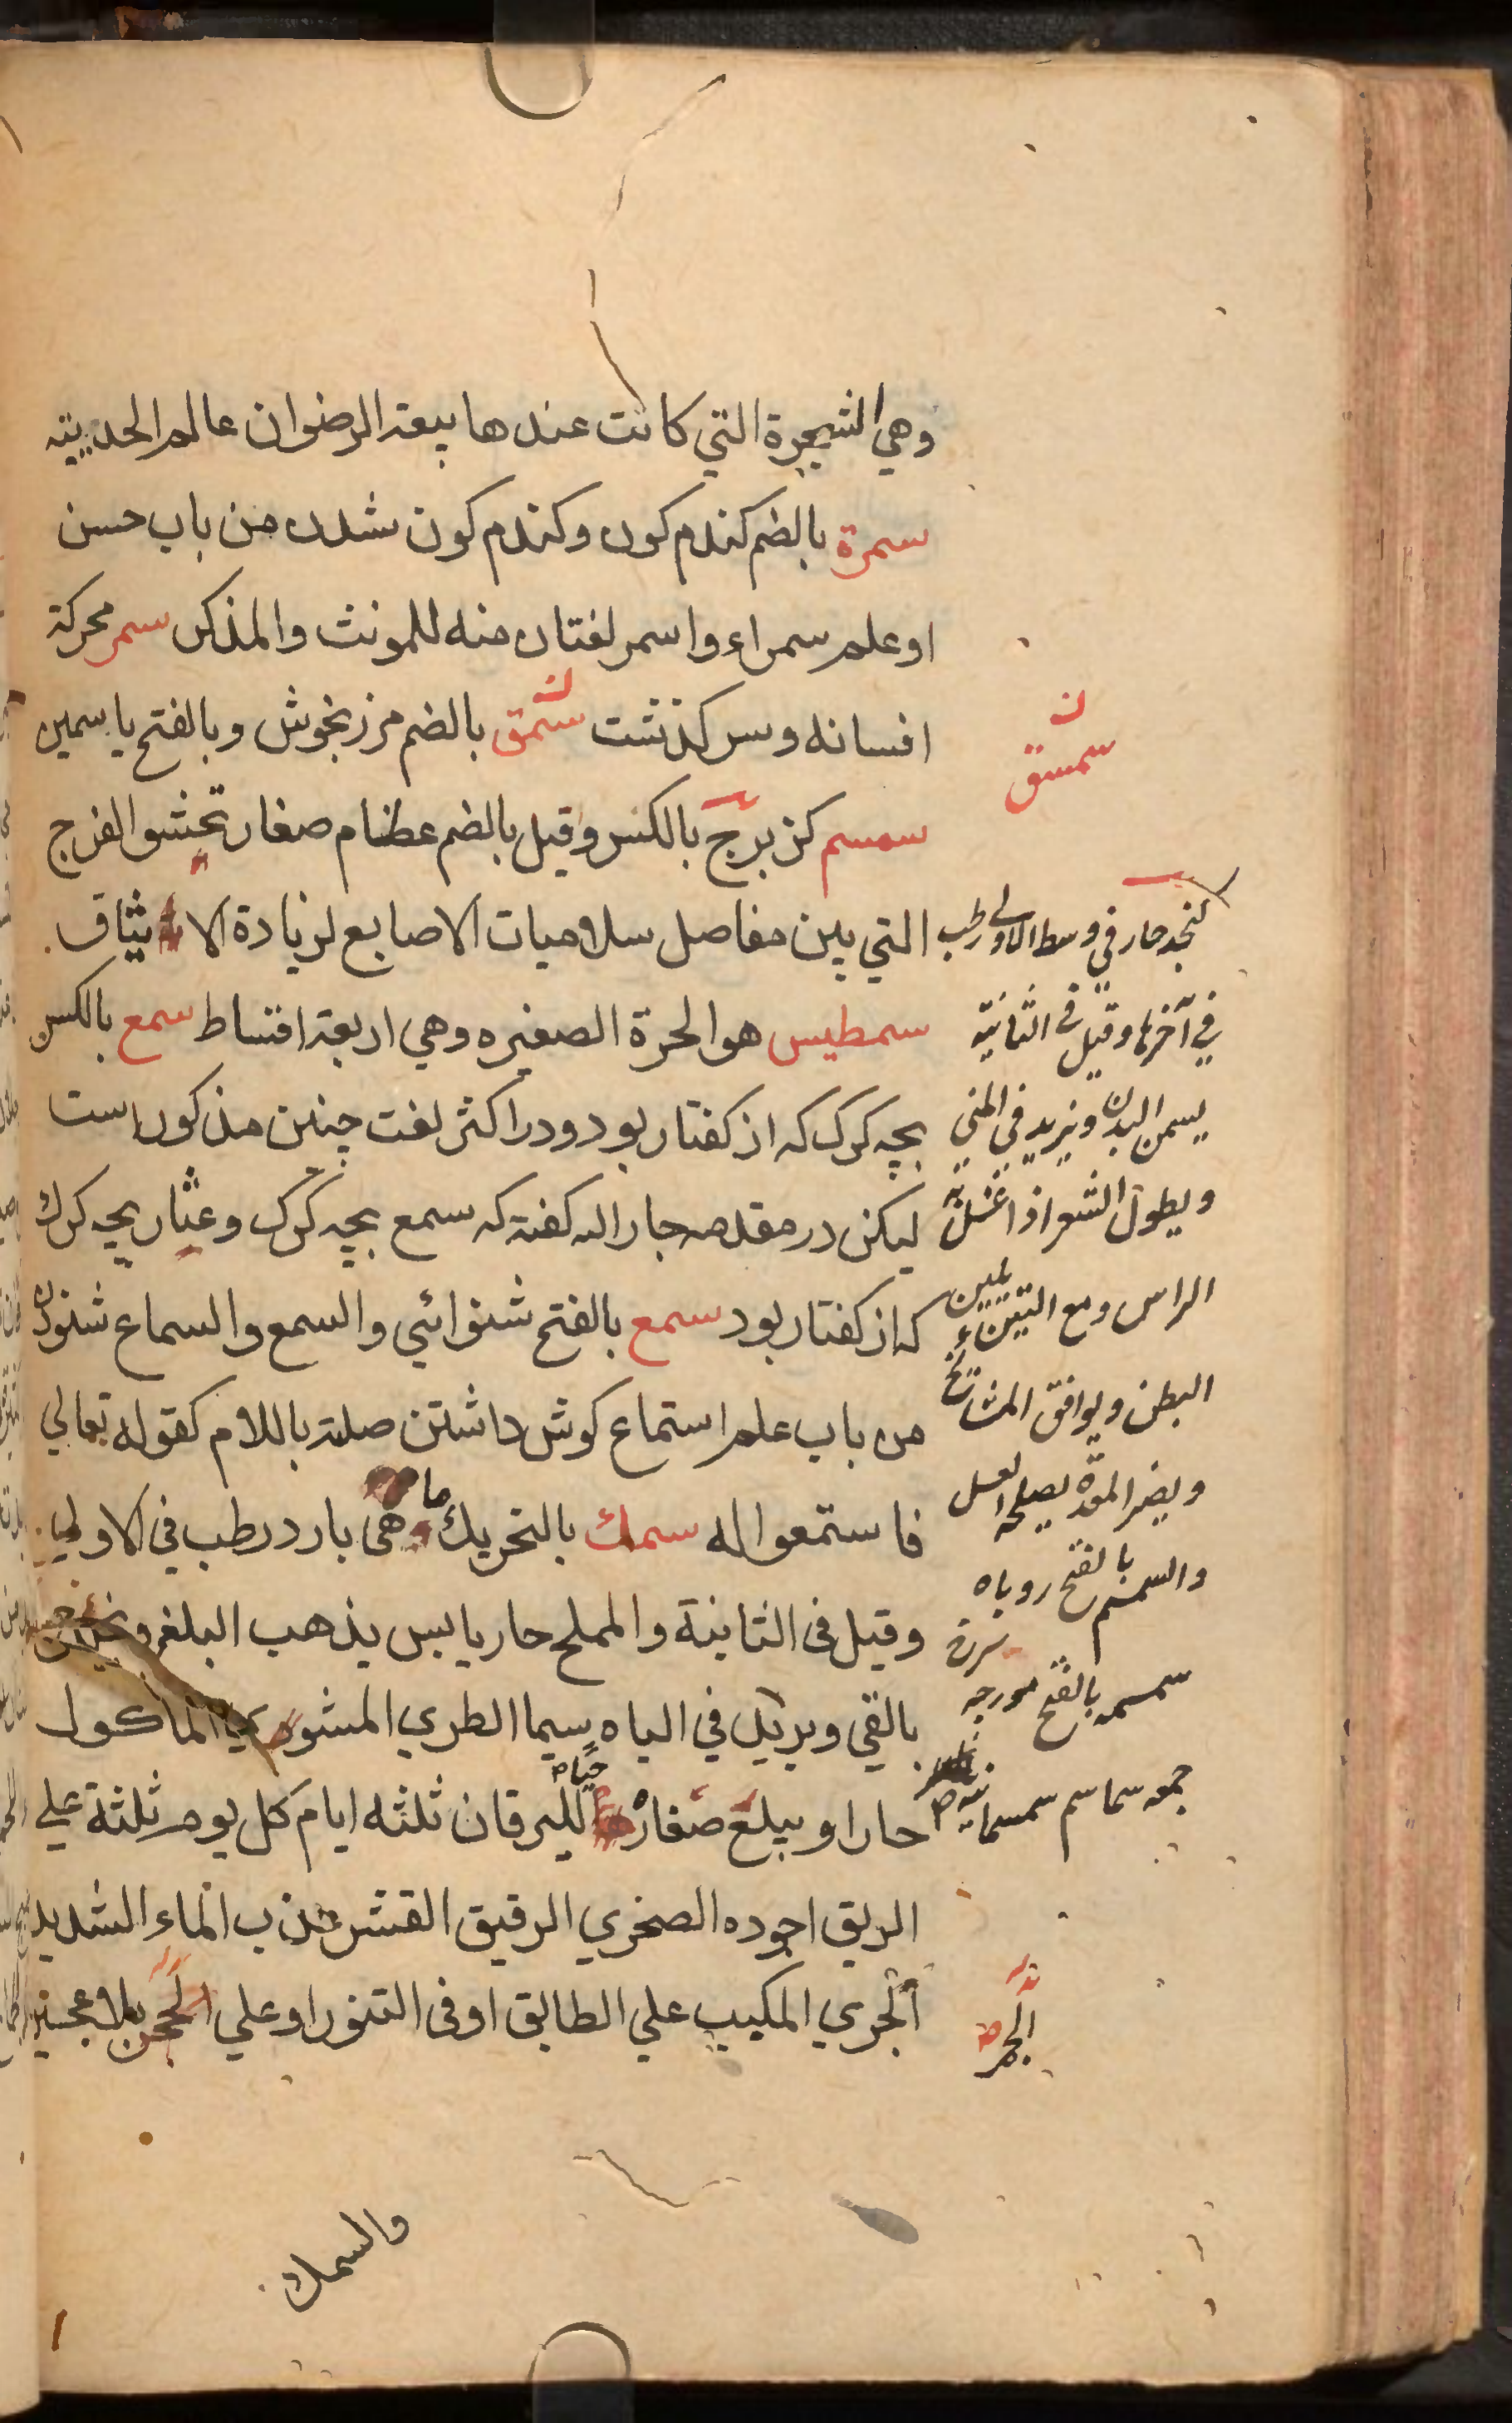 وهي الشجرة التي كانت عندها بيعة الرضوان عالم الحديبية
سمرة بالضم كندم كون وكندم كون شدن من باب حسن
او علم سمراء واسمر لغتان منه للمونث والمذكر سمر محركة
افسانه وسركذشت سمسق بالضم مرزنجوش وبالفتح ياسمين
سمسق
سمسم كزبرج بالكسر وقيل بالضم عظام صغار تحشو الفرج
التي بين مفاصل سلاميات الاصابع لزيادة الايثاق
سمطيس هو الحرة الصغيره وهي اربعة اقساط سمع بالكسر
بچه كرك كه از كفتار بود ودر اكثر لغت چنين مذكور است
ليكن در مقدمه جار الله كفته كه سمع بچه كرك وعثار بچه كرك
كه از كفتار بود سمع بالفتح شنوائي والسمع والسماع شنودن
من باب علم استماع كوش داشتن صلته باللام كقوله تعالي
فاستمعوا له سمك بالتحريك ماهى بارد رطب في الاولي
وقيل فى الثانية والمملح حار يابس يذهب البلغم
بالقي ويزيد في الباه سيما الطري المشوي الماكول
حارا ويبلع صغاره حياة لليرقان ثلثه ايام كل يوم ثلثة علي
الريق اجوده الصخري الرقيق القشر عذب الماء الشديد
الجري المكبب علي الطابق او فى التنور او علي الجمر بلا عجين
كنجد حار في وسط الاولي رطب
في آخرها وقيل فى الثانية
يسمن البدن ويزيد في المني
ويطول الشعر اذا غسل به
الراس ومع التين يلين
البطن ويوافق المشايخ
ويضر المعدة يصلحه العسل
والسمسم بالفتح روباه
سمسمه بالفتح مورچه سرخ
جمعه سماسم سمسمانيه
الجمر
والسمك